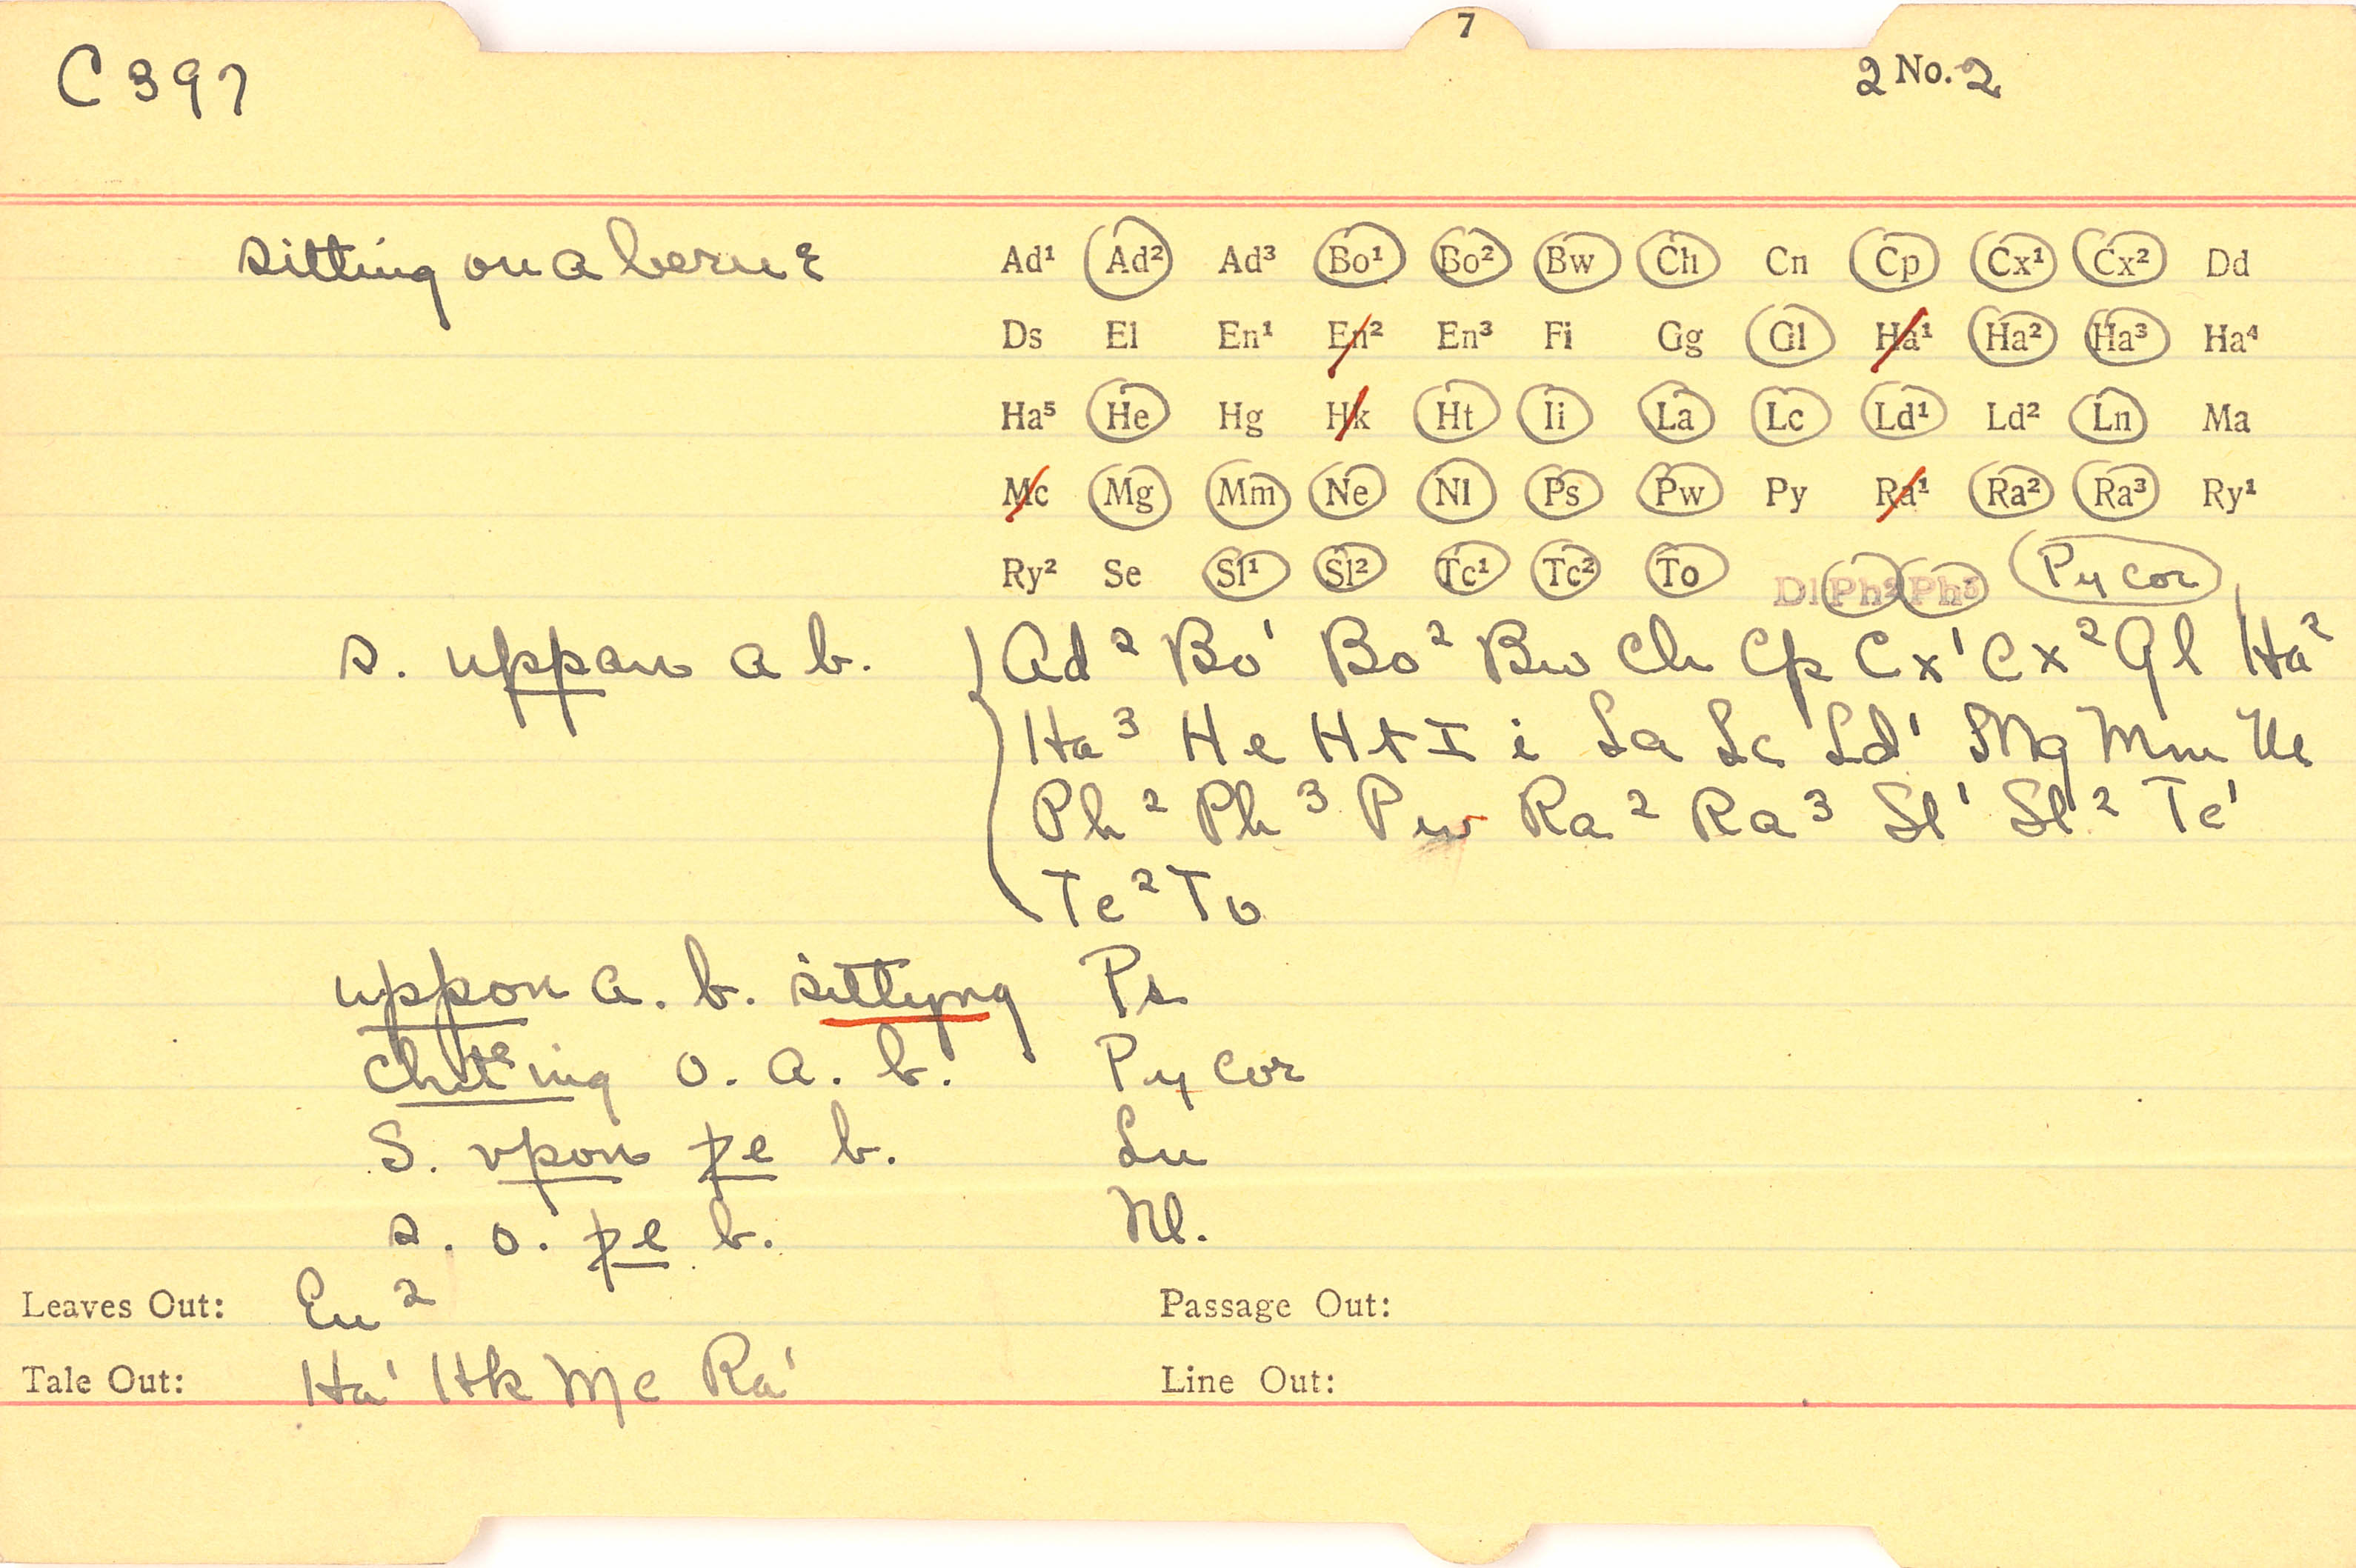 7
C 397
2 No. 2
sitting on a benche
Ad¹ Ad² Ad³ Bo¹ Bo² Bw Ch Cn Cp Cx¹ Cx² Dd
Ds El En¹ En² En³ Fi Gg Gl Ha¹ Ha² Ha³ Ha⁴
Ha⁵ He Hg Hk Ht Ii La Lc Ld¹ Ld² Ln Ma
Mc Mg Mm Ne Nl Ps Pw Py Ra¹ Ra² Ra³ Ry¹
Ry² Se Sl¹ Sl² Tc¹ Tc² To Dl Ph² Ph³ Py cor
s. uppon a b. Ad² Bo¹ Bo² Bw Ch Cp Cx¹ Cx² Gl Ha²
Ha³ He Ht Ii La Lc Ld¹ Mg Mm Ne
Ph² Ph³ Pw Ra² Ra³ Sl¹ Sl² Tc¹
Tc² To
uppon a. b. sittyng Ps
o. a. b. Py cor
S. vpon þe b. Ln
s. o. þe b. Nl.
Leaves Out: En² Passage Out:
Tale Out: Ha¹ Hk Mc Ra¹ Line Out: